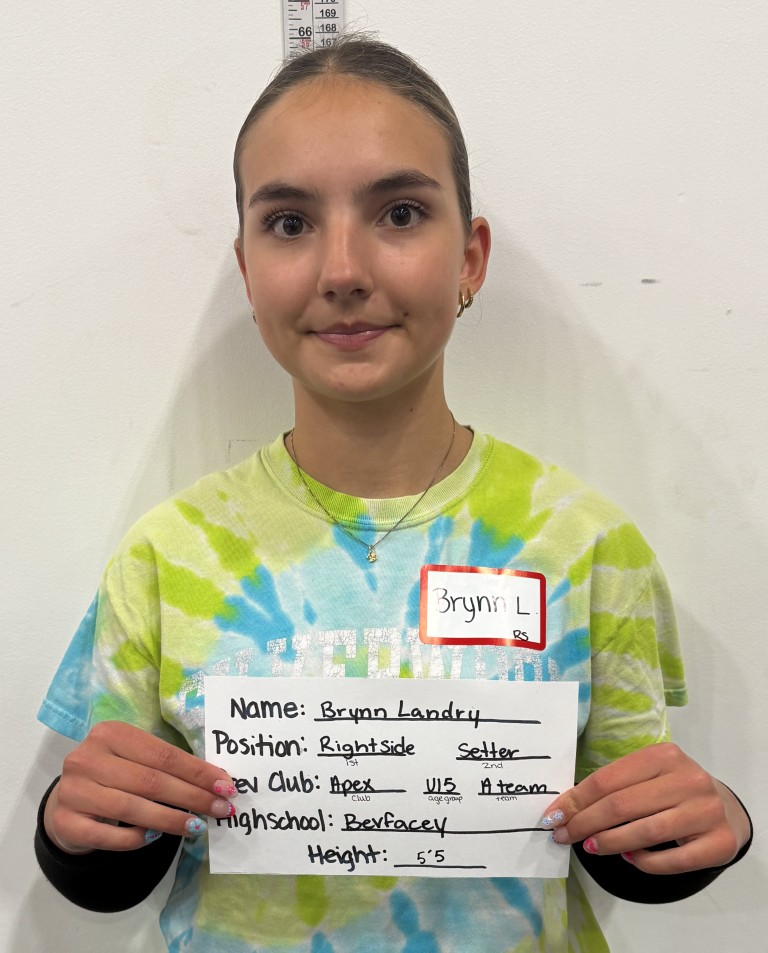 57"
170
169
66
168
167
Brynn L.
RS
Name: Brynn Landry
Position: Rightside Setter
1st 2nd
ev Club: Apex U15 A team
club age group team
Highschool: Bevfacey
Height: 5'5